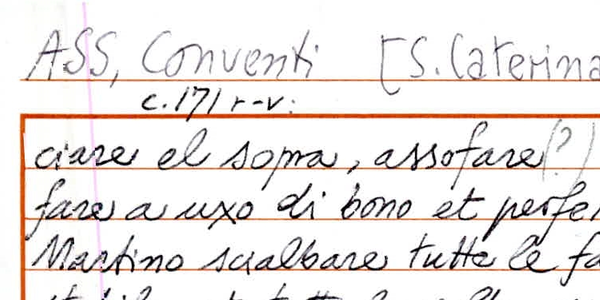 ASS, Conventi [S. Caterina
c. 171 r-v:
ciare el sopra, assofare (?)
fare a uxo di bono et perfe
Martino scialbare tutte le fa